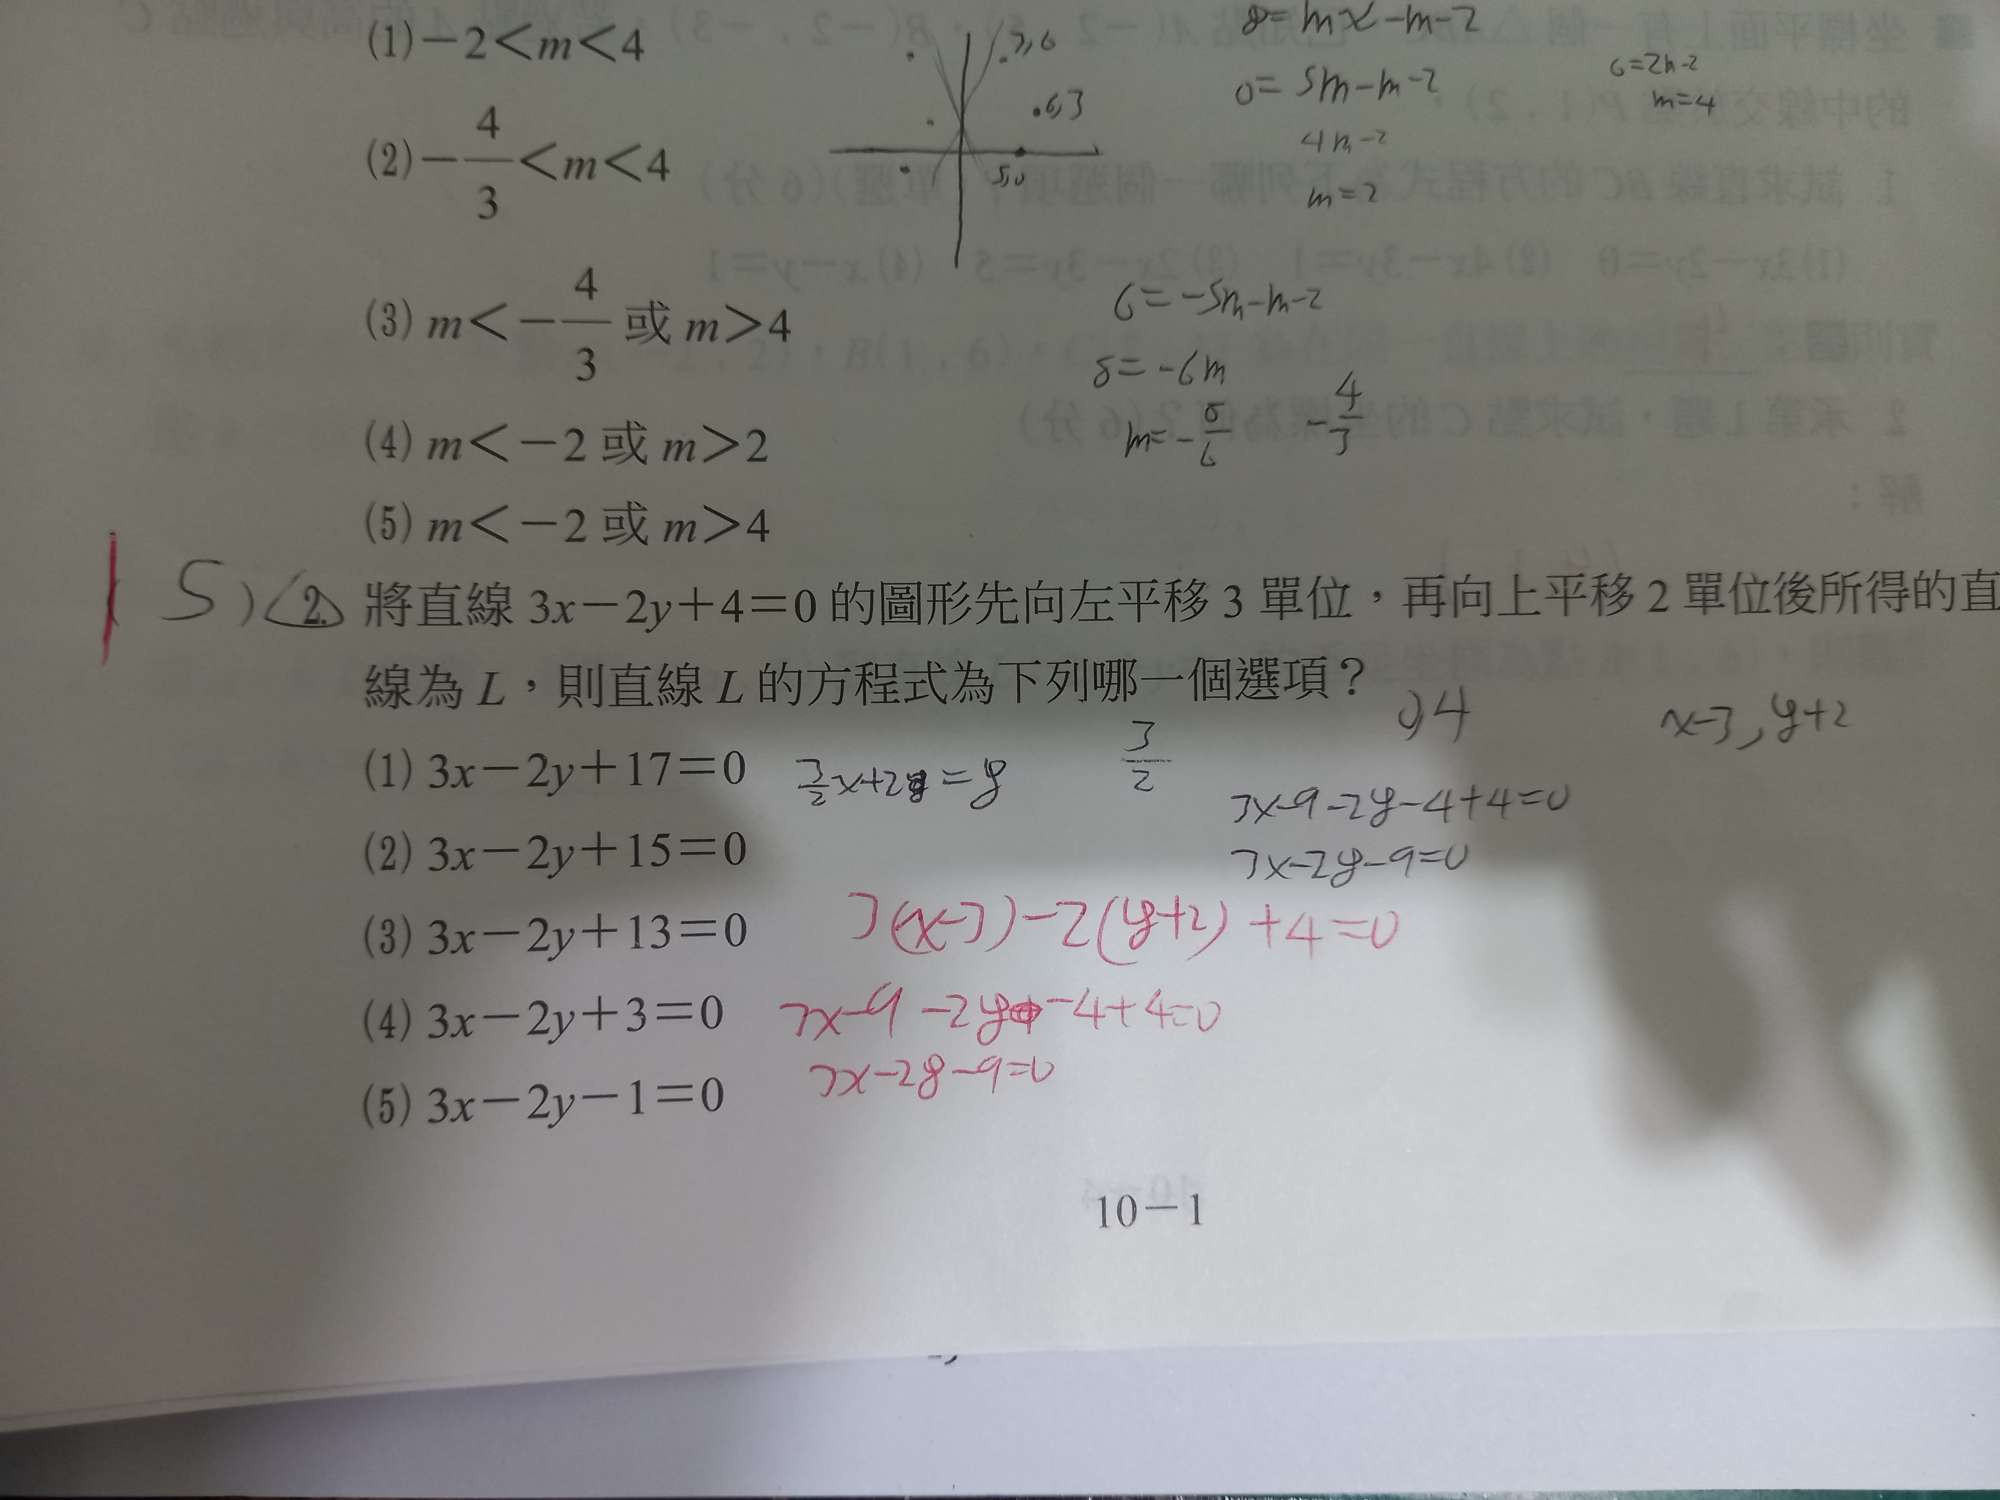 (1) −2<m<4
(2) −4/3<m<4
(3) m<−4/3 或 m>4
(4) m<−2 或 m>2
(5) m<−2 或 m>4
3,6
.6,3
5,0
8=mx−m−2
0=5m−m−2
4m−2
m=2
6=2m−2
m=4
6=−5m−m−2
8=−6m
m=−8/6
−4/3
5)
2. 將直線 3x−2y+4=0 的圖形先向左平移 3 單位，再向上平移 2 單位後所得的直
線為 L，則直線 L 的方程式為下列哪一個選項？
(1) 3x−2y+17=0
(2) 3x−2y+15=0
(3) 3x−2y+13=0
(4) 3x−2y+3=0
(5) 3x−2y−1=0
3/2x+2=y
3/2
x−3, y+2
3x−9−2y−4+4=0
3x−2y−9=0
3(x−3)−2(y+2)+4=0
3x−9−2y−4+4=0
3x−2y−9=0
10−1